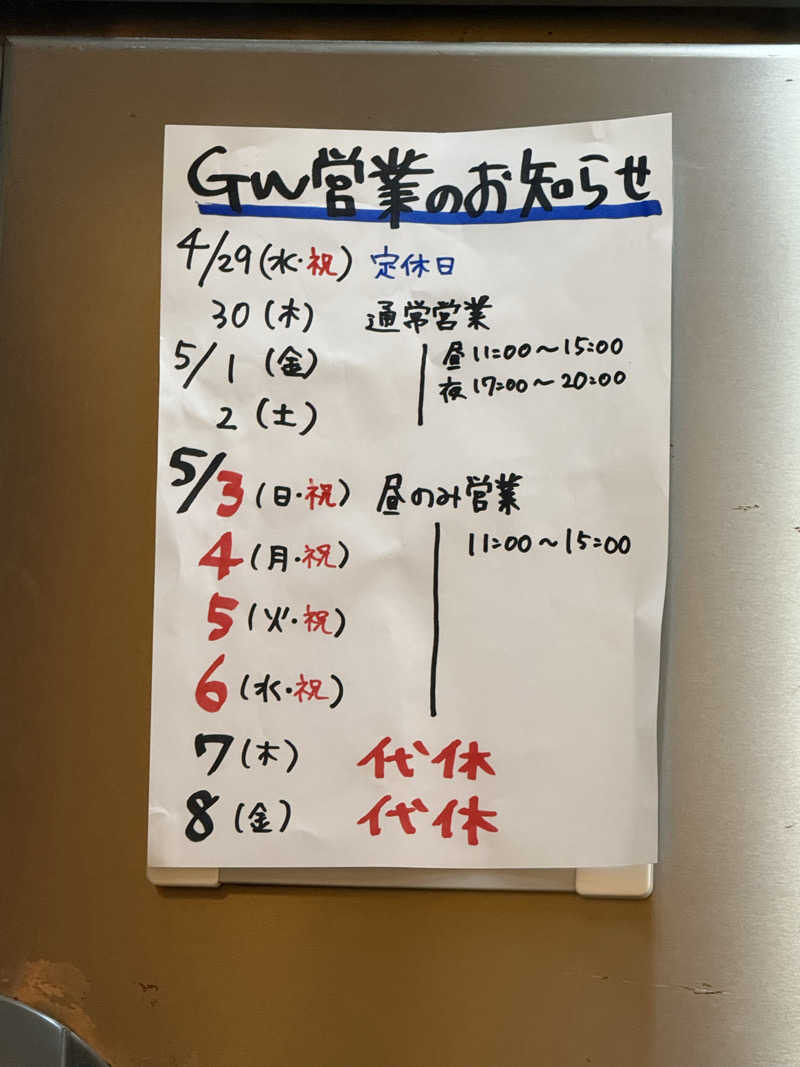 GW営業のお知らせ
4/29(水・祝) 定休日
30(木) 通常営業
5/1(金) 昼11:00～15:00
夜17:00～20:00
2(土)
5/3(日・祝) 昼のみ営業
4(月・祝) 11:00～15:00
5(火・祝)
6(水・祝)
7(木) 代休
8(金) 代休